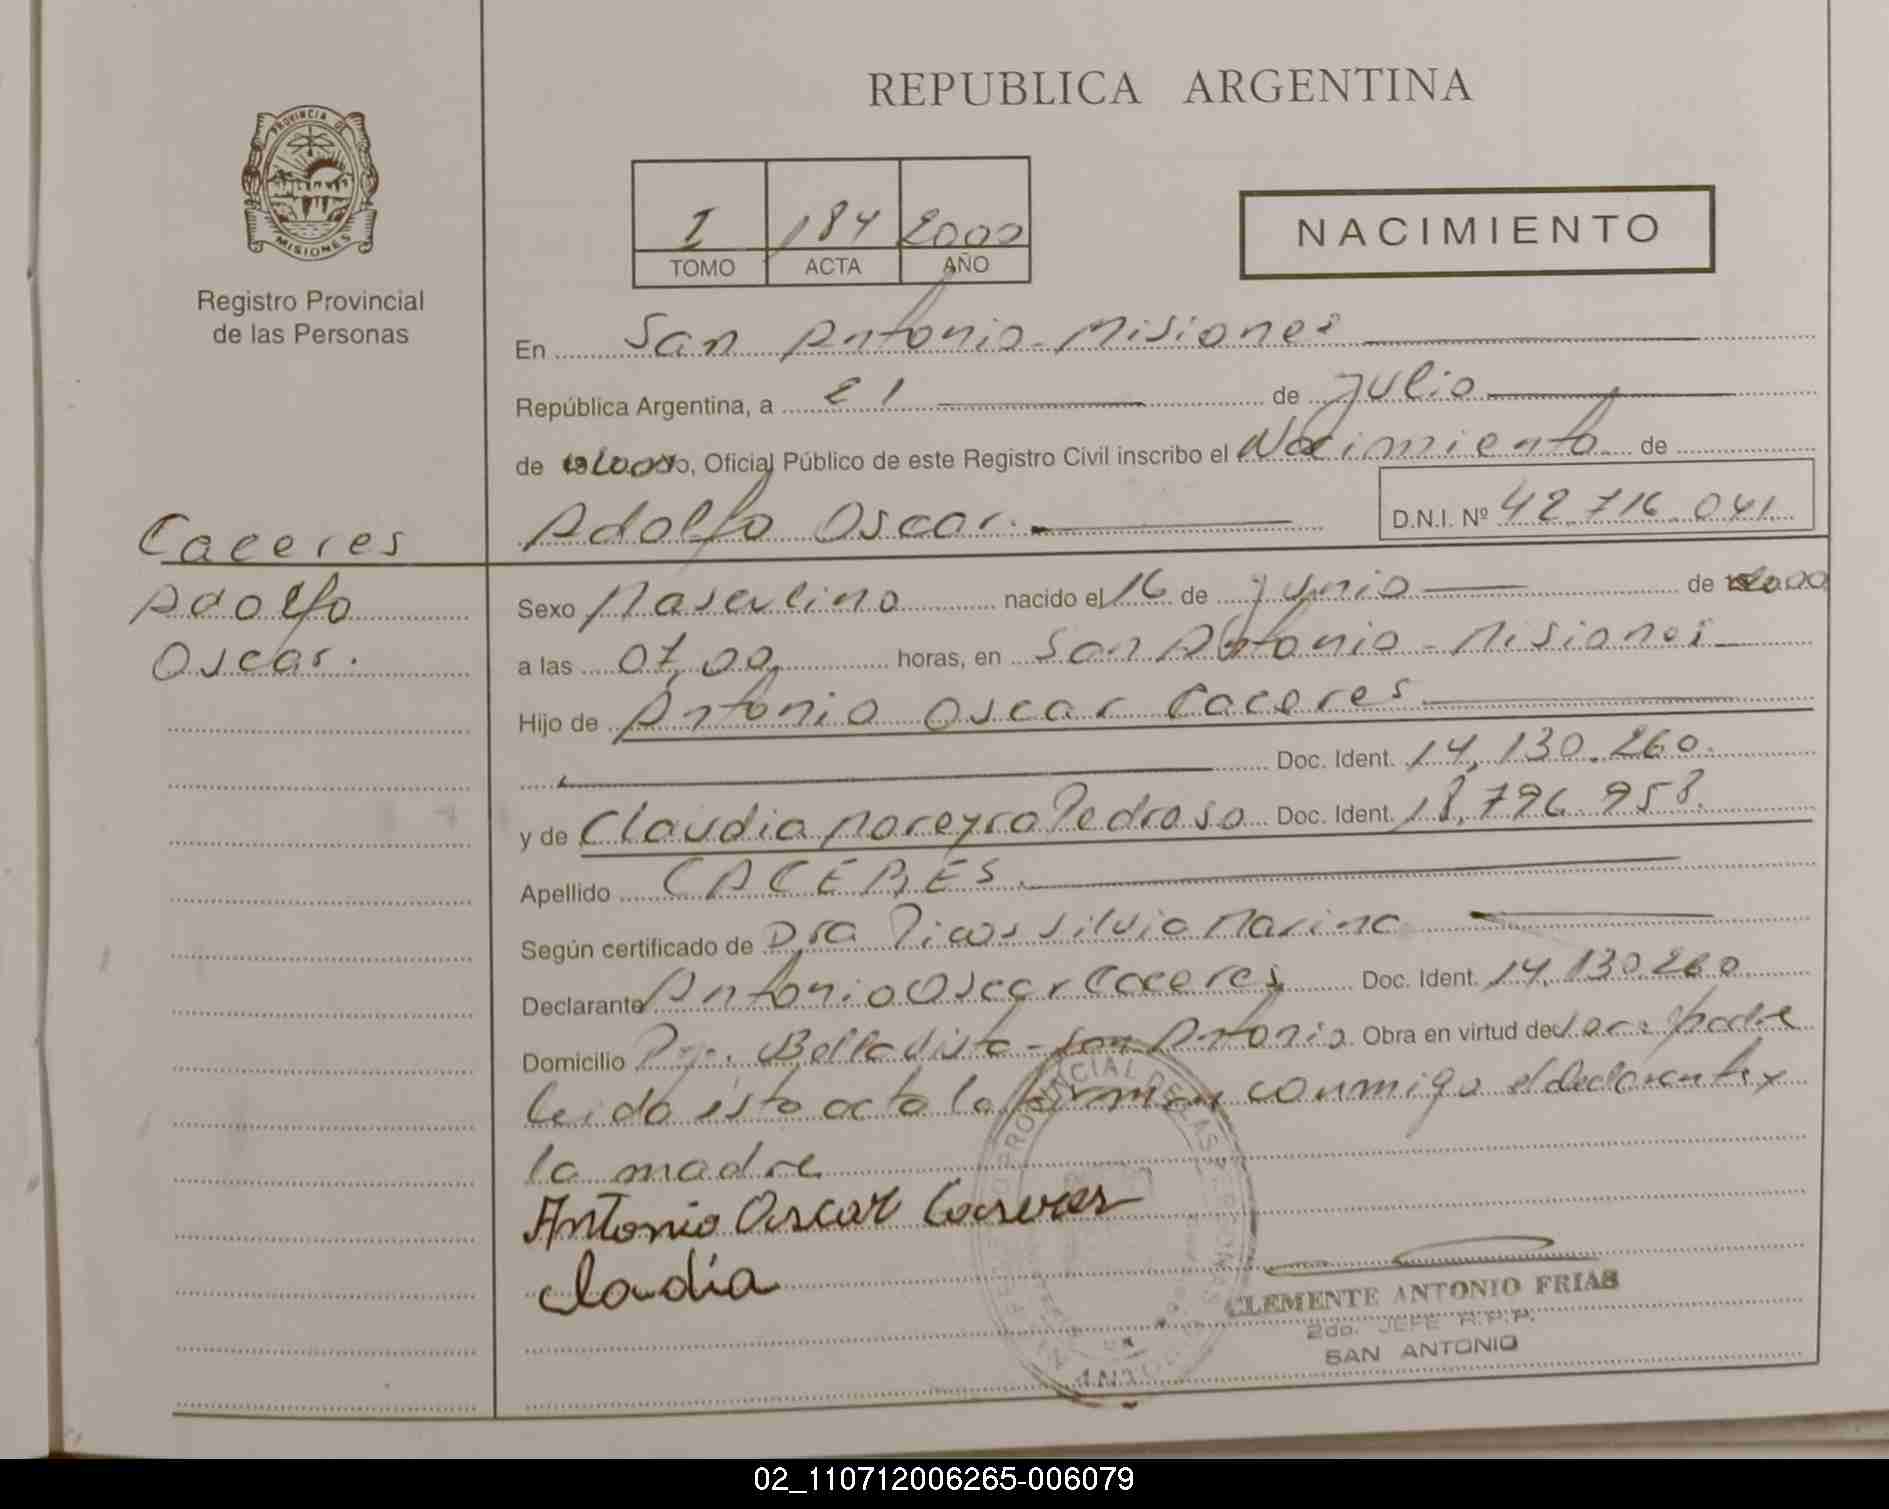 REPUBLICA ARGENTINA
PROVINCIA DE
MISIONES
Registro Provincial
de las Personas
I 184 2000
TOMO ACTA AÑO
NACIMIENTO
En San Antonio - Misiones
República Argentina, a 21 de Julio
de 2000, Oficial Público de este Registro Civil inscribo el Nacimiento de
Adolfo Oscar. D.N.I. Nº 42.716.041
Caceres
Adolfo
Oscar.
Sexo Masculino nacido el 16 de Junio de 2000
a las 07,00 horas, en San Antonio - Misiones
Hijo de Antonio Oscar Caceres
Doc. Ident. 14.130.260.
y de Claudia Moreyra Pedroso Doc. Ident. 18.796.958.
Apellido CACERES.
Según certificado de Dra Silvia Marina
Declarante Antonio Oscar Caceres Doc. Ident. 14.130.260
Domicilio Bella Vista - San Antonio. Obra en virtud de padre
leida esta acta la firman conmigo el declarante y
la madre
Antonio Oscar Caseres
Claudia
CLEMENTE ANTONIO FRIAS
2do. JEFE R.P.P.
SAN ANTONIO
02_110712006265-006079